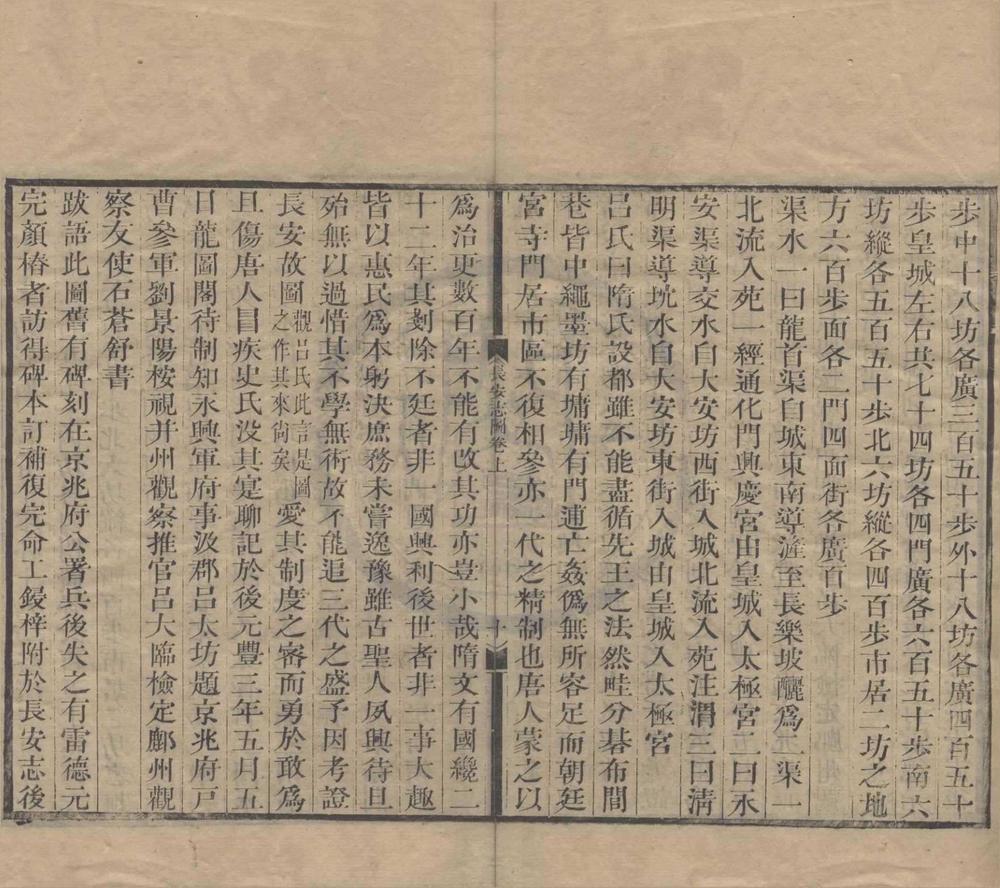 步中十八坊各廣三百五十步外十八坊各廣四百五十
步皇城左右共七十四坊各四門廣各六百五十步南六
坊縱各五百五十步北六坊縱各四百步市居二坊之地
方六百步面各二門四面街各廣百步
渠水一曰龍首渠自城東南導滻至長樂坡釃爲二渠一
北流入苑一經通化門興慶宮由皇城入太極宮二曰永
安渠導交水自大安坊西街入城北流入苑注渭三曰清
明渠導坈水自大安坊東街入城由皇城入太極宮
呂氏曰隋氏設都雖不能盡循先王之法然畦分棊布閭
巷皆中繩墨坊有墉墉有門逋亡姦僞無所容足而朝廷
宮寺門居市區不復相參亦一代之精制也唐人蒙之以
長安志圖卷上 十
爲治更數百年不能有改其功亦豈小哉隋文有國纔二
十二年其剗除不廷者非一國興利後世者非一事大趣
皆以惠民爲本躬決庶務未嘗逸豫雖古聖人夙興待旦
殆無以過惜其不學無術故不能追三代之盛予因考證
長安故圖觀呂氏此言是圖之作其來尚矣愛其制度之密而勇於敢爲
且傷唐人冒疾史氏没其寔聊記於後元豐三年五月五
日龍圖閣待制知永興軍府事汲郡呂大防題京兆府戸
曹參軍劉景陽桉視幷州觀察推官呂大臨檢定鄜州觀
察友使石蒼舒書
跋語此圖舊有碑刻在京兆府公署兵後失之有雷德元
完顏椿者訪得碑本訂補復完命工鋟梓附於長安志後